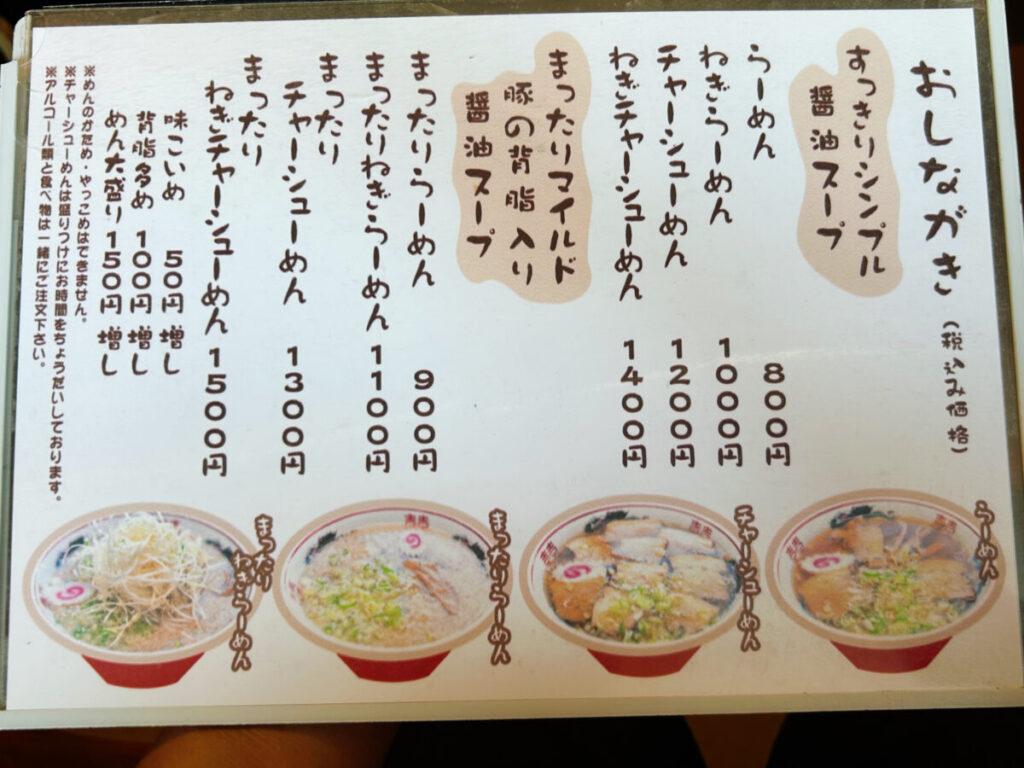 おしながき (税込み価格)
すっきりシンプル
醤油スープ
らーめん 800円
ねぎらーめん 1000円
チャーシューめん 1200円
ねぎチャーシューめん 1400円
まったりマイルド
豚の背脂入り
醤油スープ
まったりらーめん 900円
まったりねぎらーめん 1100円
まったり
チャーシューめん 1300円
まったり
ねぎチャーシューめん 1500円
味こいめ 50円増し
背脂多め 100円増し
めん大盛り 150円増し
※めんのかため・やっこめはできません。
※チャーシューめんは盛りつけにお時間をちょうだいしております。
※アルコール類と食べ物は一緒にご注文下さい。
らーめん
チャーシューめん
まったりらーめん
まったり
ねぎらーめん